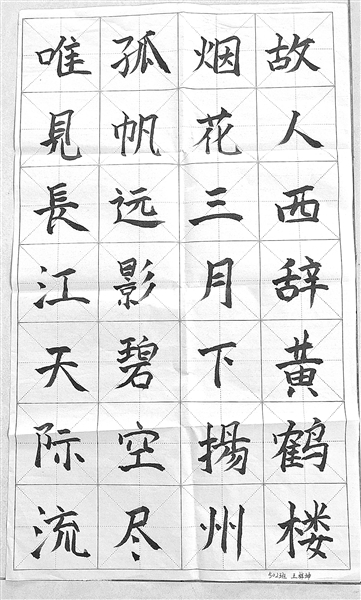 故人西辞黄鹤楼
烟花三月下揚州
孤帆远影碧空尽
唯見長江天际流